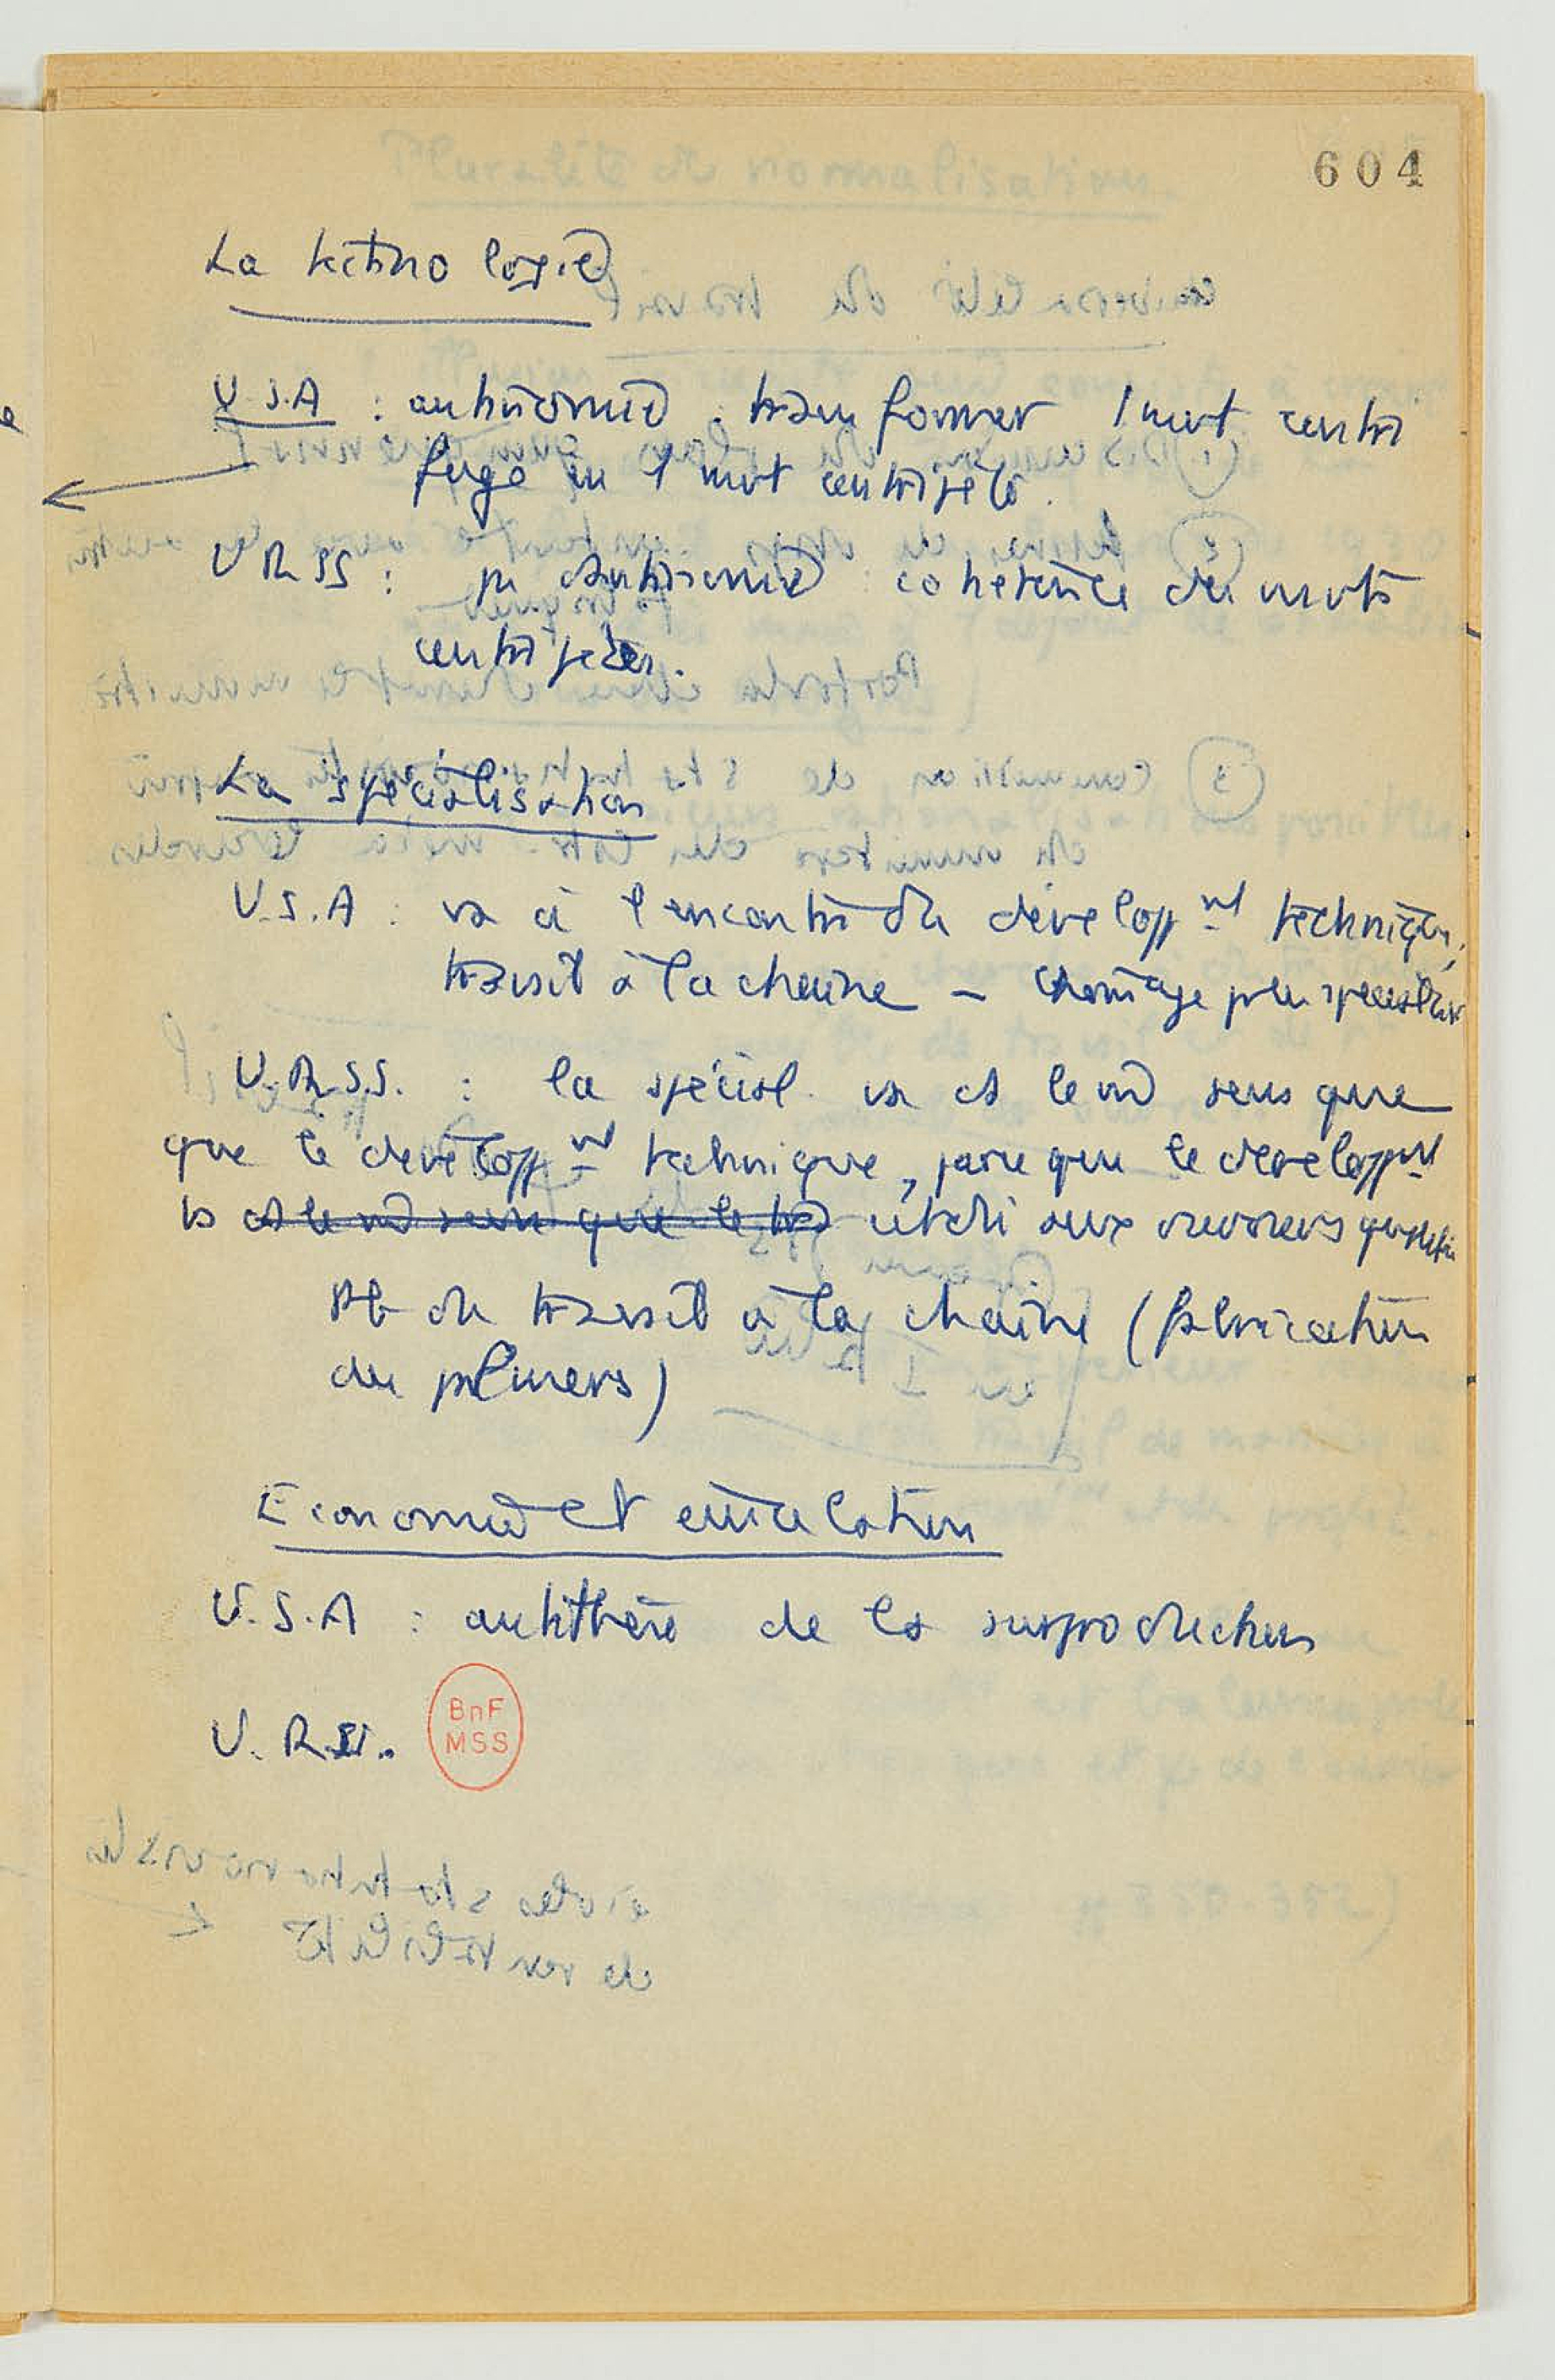 604
La technologie
U.S.A : antinomie : transformer 1 mvt centri
fuge en 1 mvt centripète.
URSS : pas d'antinomie : cohérence des mvts
centripètes.
La spécialisation
U.S.A : va à l'encontre du développnt technique,
travail à la chaîne – chomage plus spécialisés
U.R.S.S. : la spécial. va ds le m̂ sens que
que le développnt technique, parce que le développnt
ds le m̂ sens que le aux ouvriers
Pb du travail à la chaîne (fabrication
des)
Economie et émulation
U.S.A : antithèse de la surproduction
U.R.SS.
BnF
MSS